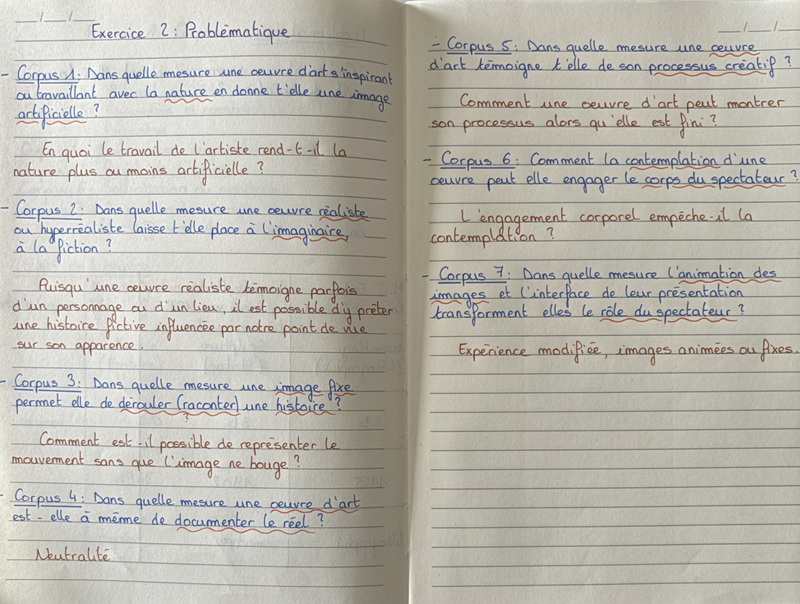 Exercice 2 : Problématique
- Corpus 1 : Dans quelle mesure une oeuvre d'art s'inspirant
ou travaillant avec la nature en donne t'elle une image
artificielle ?
En quoi le travail de l'artiste rend-t-il la
nature plus ou moins artificielle ?
- Corpus 2 : Dans quelle mesure une oeuvre réaliste
ou hyperréaliste laisse t'elle place à l'imaginaire,
à la fiction ?
Puisqu'une oeuvre réaliste témoigne parfois
d'un personnage ou d'un lieu, il est possible d'y prêter
une histoire fictive influencée par notre point de vue
sur son apparence.
- Corpus 3 : Dans quelle mesure une image fixe
permet elle de dérouler (raconter) une histoire ?
?
Comment est-il possible de représenter le
mouvement sans que l'image ne bouge ?
- Corpus 4 : Dans quelle mesure une oeuvre d'art
est-elle à même de documenter le réel ?
Neutralité
- Corpus 5 : Dans quelle mesure une oeuvre
d'art témoigne t'elle de son processus créatif ?
Comment une oeuvre d'art peut montrer
son processus alors qu'elle est fini ?
- Corpus 6 : Comment la contemplation d'une
oeuvre peut elle engager le corps du spectateur ?
L'engagement corporel empêche-il la
contemplation ?
- Corpus 7 : Dans quelle mesure l'animation des
images et l'interface de leur présentation
transforment elles le rôle du spectateur ?
Expérience modifiée, images animées ou fixes.